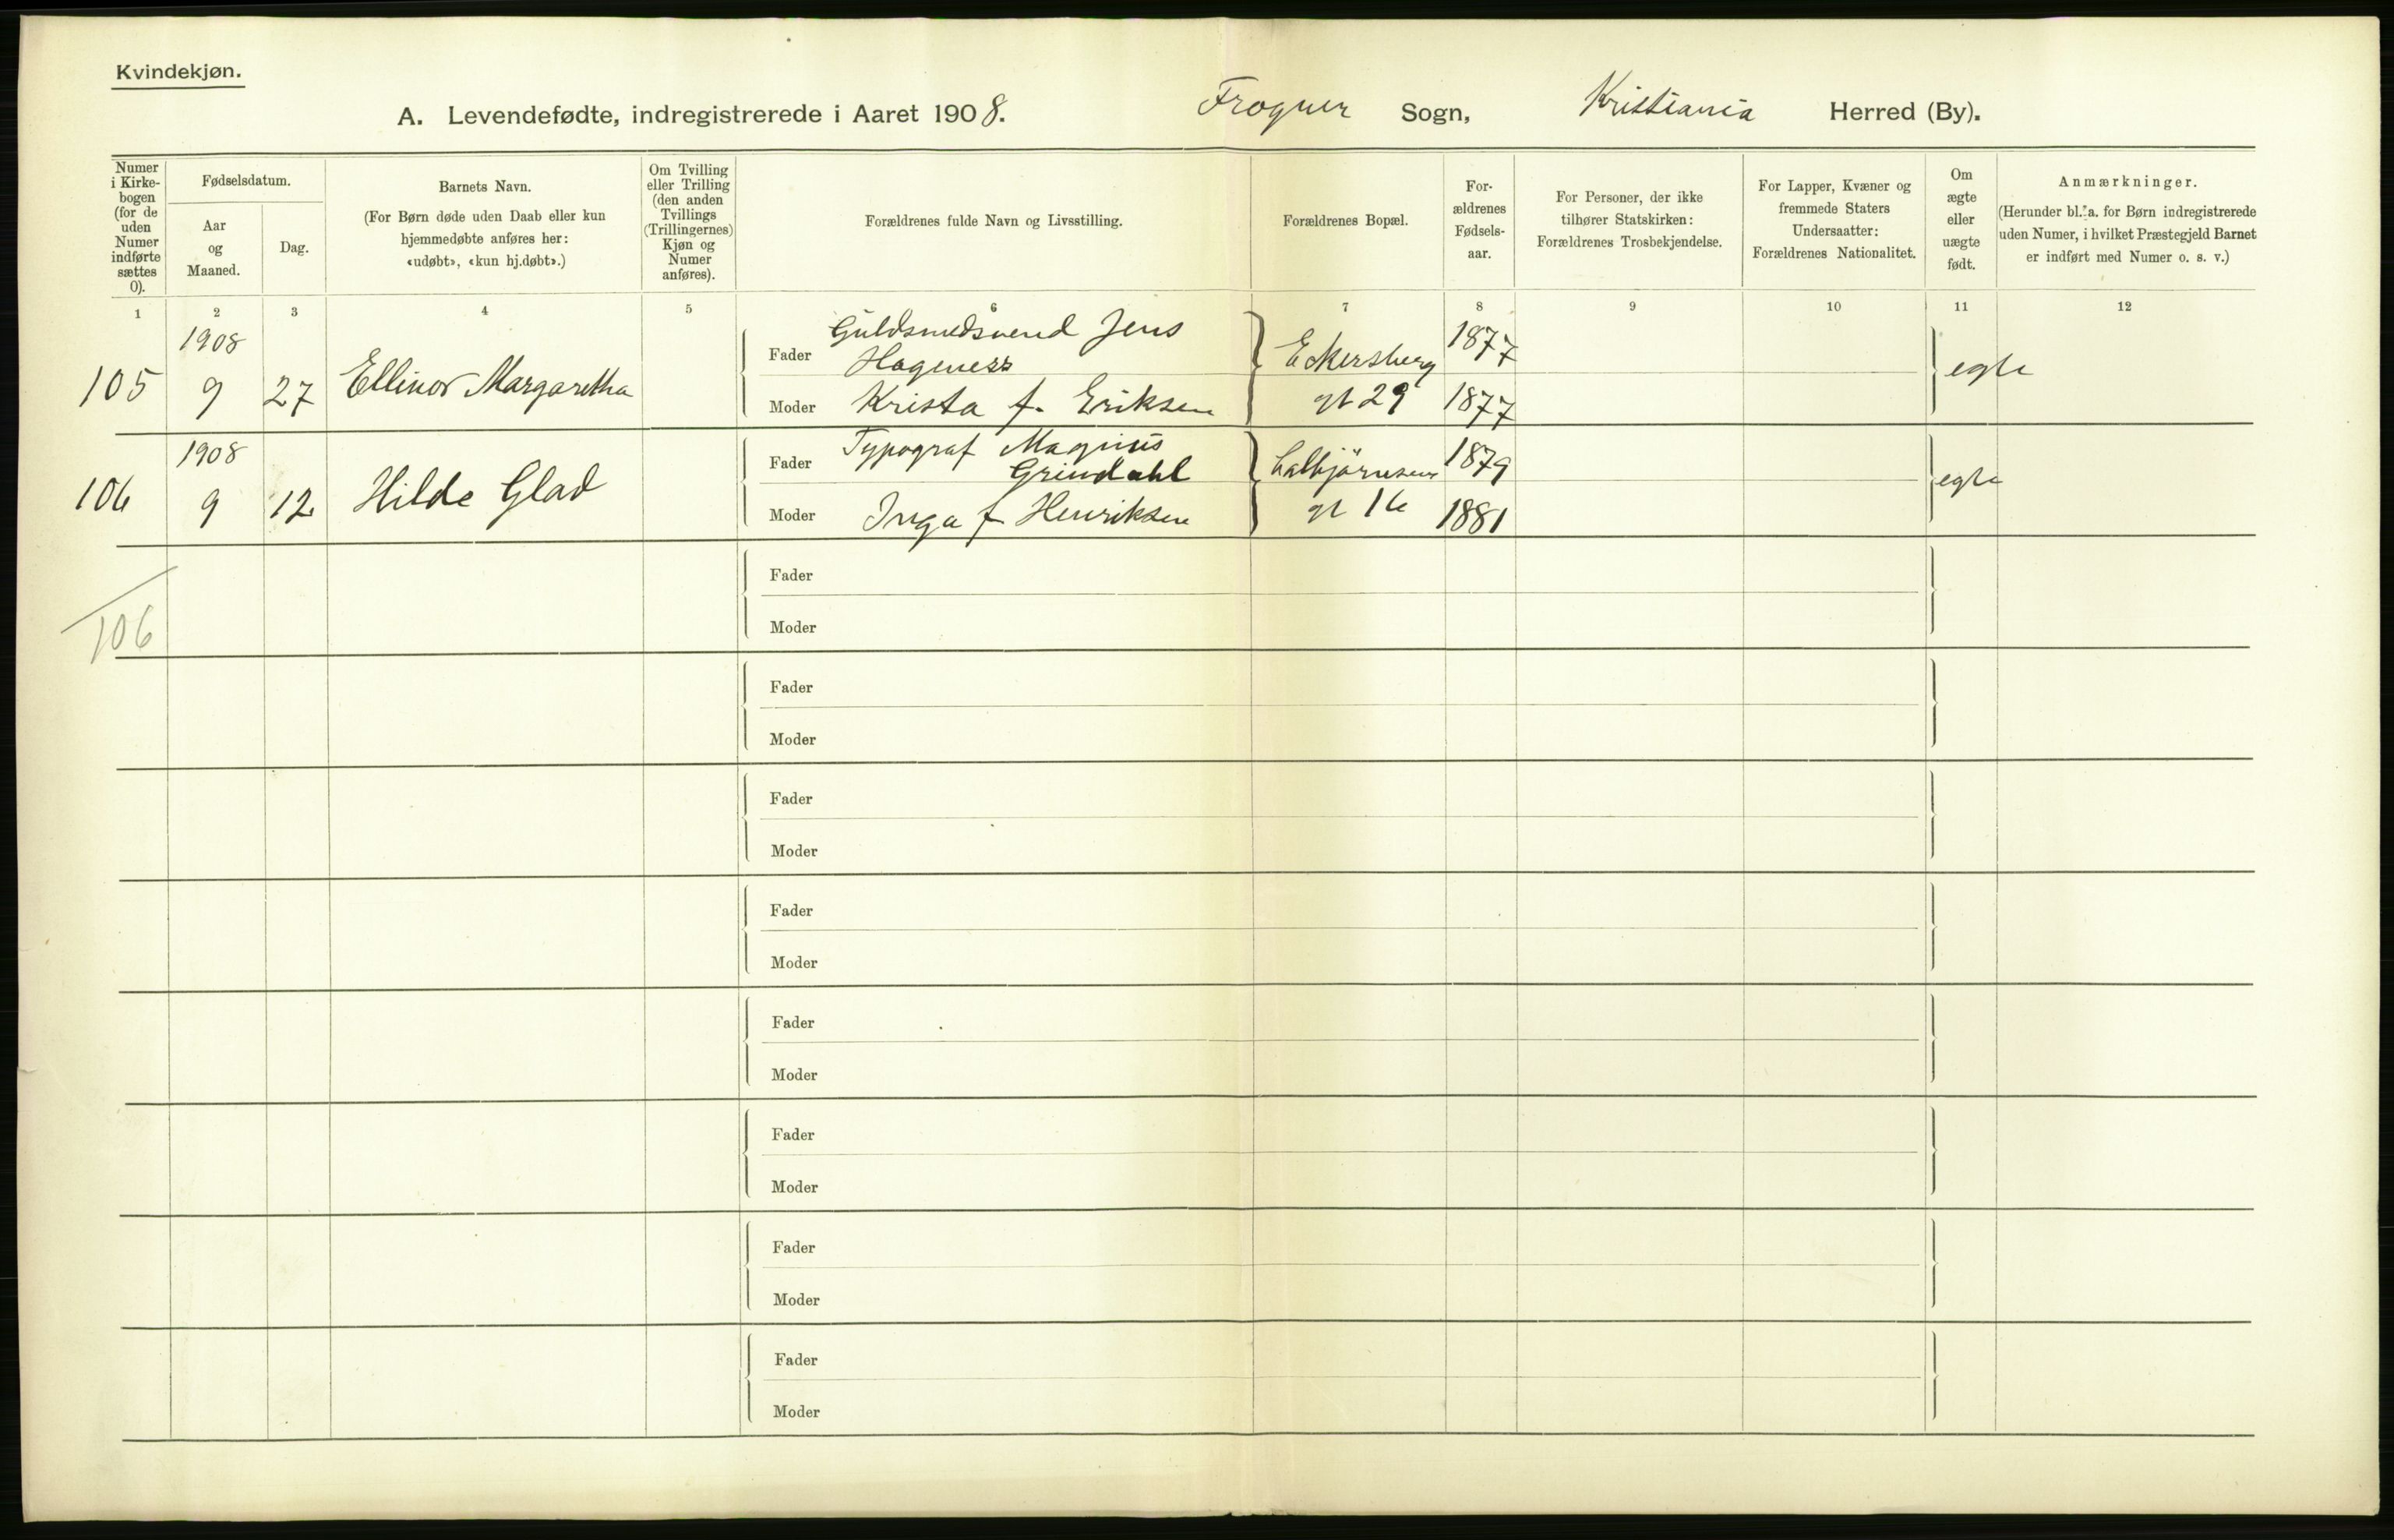 Kvindekjøn.
A. Levendefødte, indregistrerede i Aaret 1908. Frogner Sogn, Kristiania Herred (By).
Numer i Kirke-bogen (for de uden Numer indførte sættes 0).
Fødselsdatum.
Aar og Maaned.
Dag.
Barnets Navn.
(For Børn døde uden Daab eller kun
hjemmedøbte anføres her:
«udøbt», «kun hj.døbt».)
Om Tvilling
eller Trilling
(den anden
Tvillings
(Trillingernes)
Kjøn og
Numer
anføres).
Forældrenes fulde Navn og Livsstilling.
Forældrenes Bopæl.
For-
ældrenes
Fødsels-
aar.
For Personer, der ikke
tilhører Statskirken:
Forældrenes Trosbekjendelse.
For Lapper, Kvæner og
fremmede Staters
Undersaatter:
Forældrenes Nationalitet.
Om
ægte
eller
uægte
født.
Anmærkninger.
(Herunder bl. a. for Børn indregistrerede
uden Numer, i hvilket Præstegjeld Barnet
er indført med Numer o. s. v.)
1 2 3 4 5 6 7 8 9 10 11 12
1908 Guldsmedsvend Jens
Fader Hageness Eckersberg 1877
105 9 27 Ellinor Margaretha egte
Moder Krista f. Eriksen gt 29 1877
1908 Typograf Magnus
Fader Grindahl Colbjörnsens 1879
106 9 12 Hilde Glad egte
Moder Inga f Henriksen gt 16 1881
Fader
106
Moder
Fader
Moder
Fader
Moder
Fader
Moder
Fader
Moder
Fader
Moder
Fader
Moder
Fader
Moder